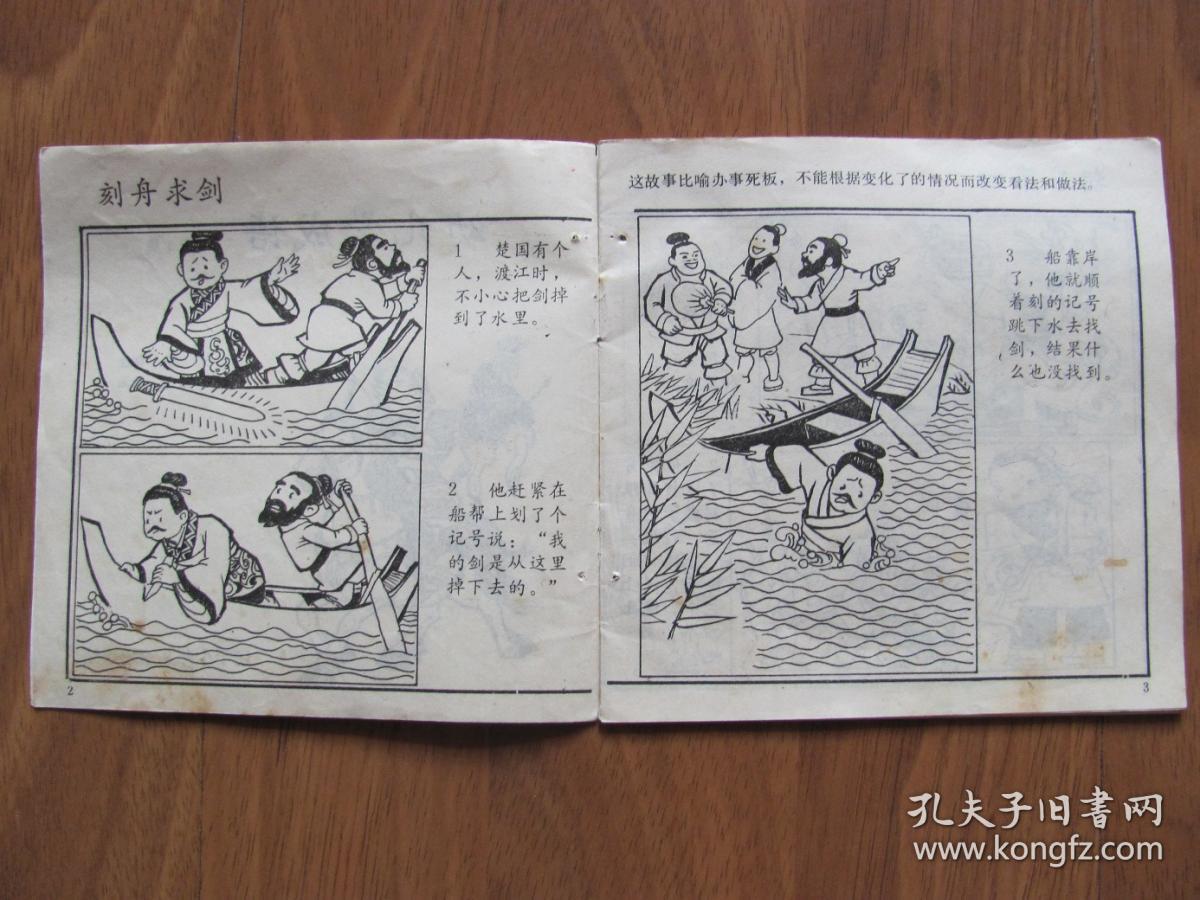 刻舟求剑
1 楚国有个
人，渡江时，
不小心把剑掉
到了水里。
2 他赶紧在
船帮上划了个
记号说：“我
的剑是从这里
掉下去的。”
2
这故事比喻办事死板，不能根据变化了的情况而改变看法和做法。
3 船靠岸
了，他就顺
着刻的记号
跳下水去找
剑，结果什
么也没找到。
3
孔夫子旧書网
www.kongfz.com